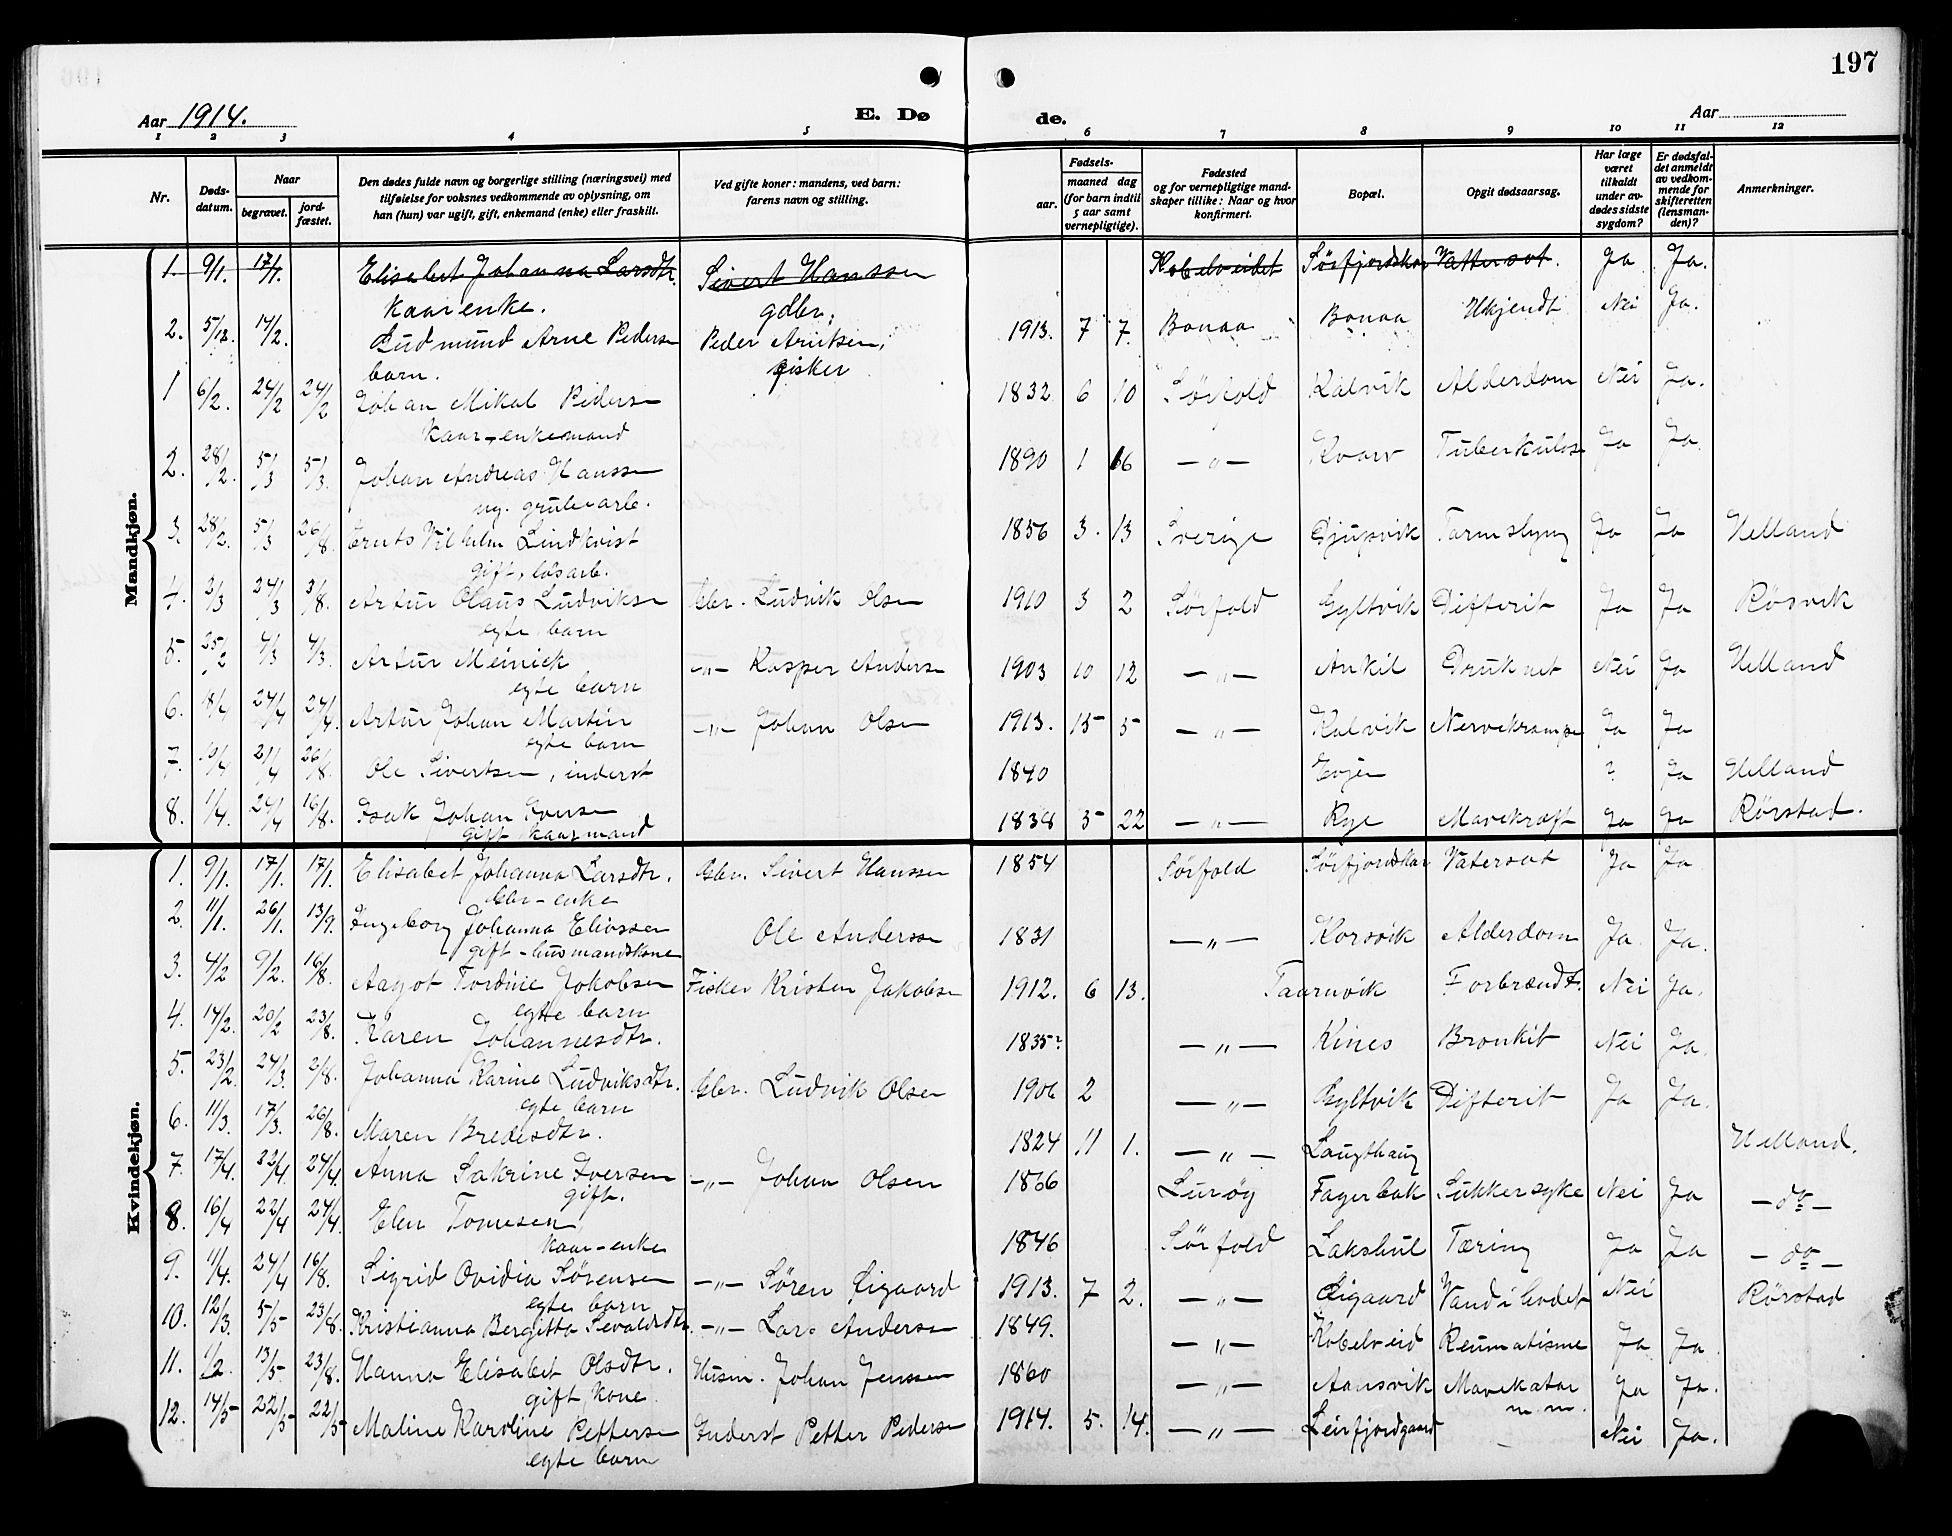 197
Aar 1914.
E. Dø
de.
Aar
1 2 3 4 5 6 7 8 9 10 11 12
Nr.
Døds-
datum.
Naar
begravet.
jord-
fæstet.
Den dødes fulde navn og borgerlige stilling (næringsvei) med
tilføielse for voksnes vedkommende av oplysning, om
han (hun) var ugift, gift, enkemand (enke) eller fraskilt.
Ved gifte koner: mandens, ved barn:
farens navn og stilling.
Fødsels-
aar.
maaned dag
(for barn indtil
5 aar samt
vernepligtige).
Fødested
og for vernepligtige mand-
skaper tillike: Naar og hvor
konfirmert.
Bopæl.
Opgit dødsaarsag.
Har læge
været
tilkaldt
under av-
dødes sidste
sygdom?
Er dødsfal-
det anmeldt
av vedkom-
mende for
skifteretten
(lensman-
den)?
Anmerkninger.
Mandkjøn.
1. 9/1. 17/1. Elisabet Johanna Larsdtr. Sivert Hanssen Kobelveidet Sörfjordskar Vattersot. Ja Ja.
kaarenke. gdbr.
2. 5/12. 14/2. Ludmund Arne Peders Peder Arntsen, 1913. 7 7. Bonaa Bonaa Ukjendt Nei Ja.
barn. fisker
1 6/2. 24/2 24/2 Johan Mikal Peders 1832 6 10 Sörfold Kalvik Alderdom Nei Ja.
kaar-enkemand
2. 28/2. 5/3 5/3. Johan Andreas Hanssen 1890 1 16 -"- Kvarv Tuberkulos Ja Ja.
ug. grubearb.
3. 28/2. 5/3 26/8. Ernts Vilhelm Lindkvist 1856 3. 13 Sverige Djupvik Tarmslyng Ja Ja Helland
gift, løsarb.
4. 2/3 24/3 3/8. Artur Olaus Ludviksn Gbr. Ludvik Olsen 1910 3 2 Sörfold Gyltvik Difterit Ja Ja Røsvik
egte barn
5. 25/2 4/3 4/3. Artur Meinick -"- Kasper Anders 1903 10 12 -"- Ankil Druknet Nei Ja Helland
egte barn
6. 8/4 24/4 24/4. Artur Johan Martin -"- Johan Olsen 1913. 15 5 -"- Kalvik Nervekrampe Ja Ja
egte barn
7. 10/4 21/4 26/8. Ole Sivertsen, inderst 1840 Evjen ? Ja Helland
8. 1/4. 24/4 16/8. Isak Johan Ivers 1838 5 22 -"- Rye Mavekræft Ja Ja Rørstad.
gift, kaarmand
Kvindekjøn.
1. 9/1. 17/1. 17/1. Elisabet Johanna Larsdtr. Gbr. Sivert Hanssen 1854 Sörfold Sörfjordskar Vatersot Ja Ja
Gbr-enke
2. 11/1. 26/1. 13/9. Ingeborg Johanna Eliassen Ole Anderss 1831 -"- Korsvik Alderdom Ja. Ja.
gift-husmandskone
3. 4/2 9/2. 16/8. Aagot Tordine Jakobsen Fisker Kristen Jakobsen 1912. 6 13. Taarnvik Forbrændt. Nei Ja.
egte barn
4. 14/2. 20/2 23/8. Karen Johannesdtr. 1835? -"- Kines Bronkit Nei Ja
5. 23/2. 24/3. 2/8. Johanna Karine Ludviksdtr. Gbr. Ludvik Olsen 1906 2 -"- Gyltvik Difterit Ja Ja.
egte barn
6. 11/3. 17/3. 26/8. Maren Bredesdtr. 1824 11 1. -"- Laugthaug Helland.
7. 17/4. 22/4. 24/4. Anna Sakrine Iversen -"- Johan Olsen 1866 Lurøy Fagerbak Sukkersyke Nei Ja -do-
gift.
8. 16/4 22/4 24/4. Elen Tomesen 1846 Sörfold Lakshul Tæring Ja Ja -do-
kaar-enke
9. 11/4. 24/4 16/8. Sigrid Ovidia Sørensen -"- Sören Eigaard 1913. 7 2. -"- Eigaard Vand i hodet Nei Rørstad
egte barn
10. 12/3. 5/5 23/8. Kristianna Bergitta Sevaldsdtr. -"- Lars Anders 1849. -"- Kobelveid Reumatisme Ja Ja.
11. 1/2. 13/5. 23/8. Hanna Elisabet Olsdtr. Husm. Johan Jenssen 1860 -"- Aansvik Mavekatar Ja Ja.
gift, kone m.m.
12. 14/5 22/5 22/5 Maline Karoline Petters Inderst Petter Peders 1914. 5. 14. -"- Leirfjordgaard - Nei Ja.
egte barn